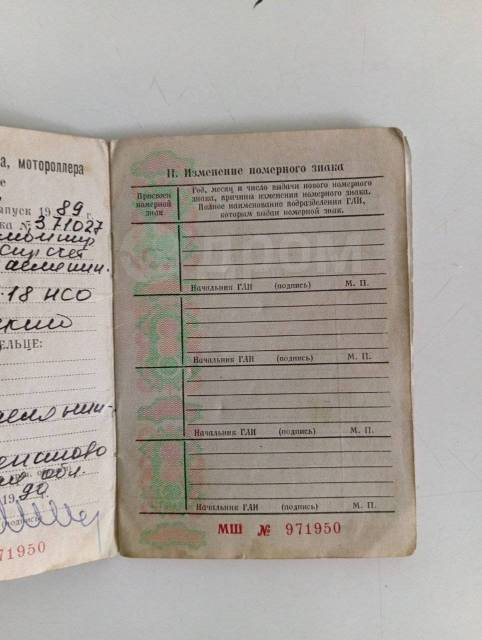 а, мотороллера
ыпуск 1989 г.
ка № 371027
18 НСО
ский
ЕЛЬЦЕ:
19 90
71950
II. Изменение номерного знака
Присвоен номерной знак
Год, месяц и число выдачи нового номерного
знака, причина изменения номерного знака.
Полное наименование подразделения ГАИ,
которым выдан номерной знак.
дром
Начальник ГАИ (подпись) М. П.
Начальник ГАИ (подпись) М. П.
Начальник ГАИ (подпись) М. П.
Начальник ГАИ (подпись) М. П.
МШ № 971950